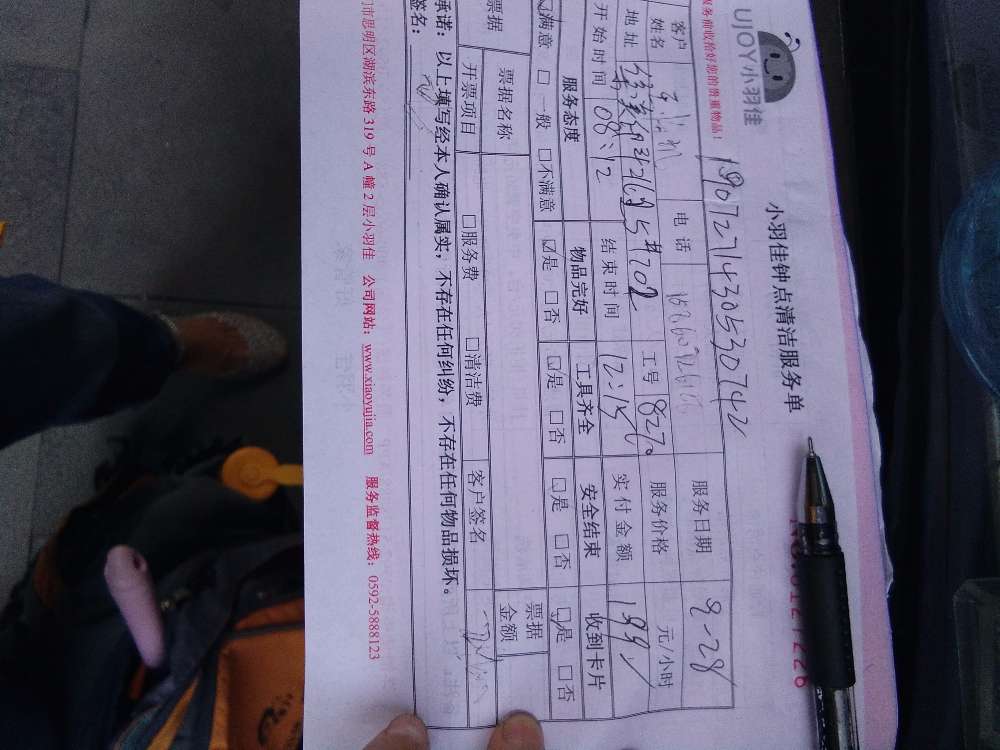 UJOY小羽佳
小羽佳钟点清洁服务单
服务前收拾好您的贵重物品!
1907271430530742
服务日期 8-28
客户姓名 电话 服务价格 元/小时
地址 #702 工号 827
开始时间 08:12 结束时间 12:15 实付金额 199
服务态度 物品完好 工具齐全 安全结束 收到卡片
☑满意 □一般 □不满意 ☑是 □否 ☑是 □否 ☑是 □否 ☑是 □否
票据 票据名称 票据金额
开票项目 □服务费 □清洁费 客户签名
承诺:以上填写经本人确认属实,不存在任何纠纷,不存在任何物品损坏。
签名:
门市思明区湖滨东路 319 号 A 幢 2 层小羽佳 公司网站:www.xiaoyujia.com 服务监督热线:0592-5888123